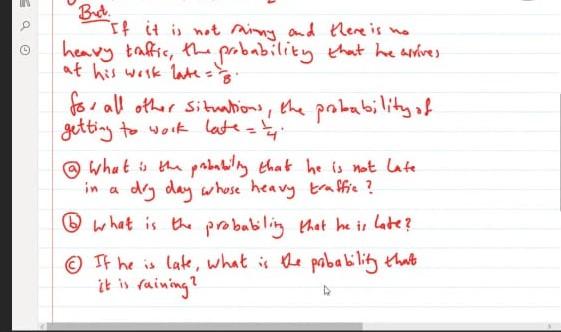 But.
If it is not rainy and there is no
heavy traffic, the probability that he arrives
at his work late = 1/8.
for all other situations, the probability of
getting to work late = 1/4.
ⓐ What is the probability that he is not late
in a dry day whose heavy traffic ?
ⓑ what is the probability that he is late?
ⓒ If he is late, what is the probability that
it is raining?